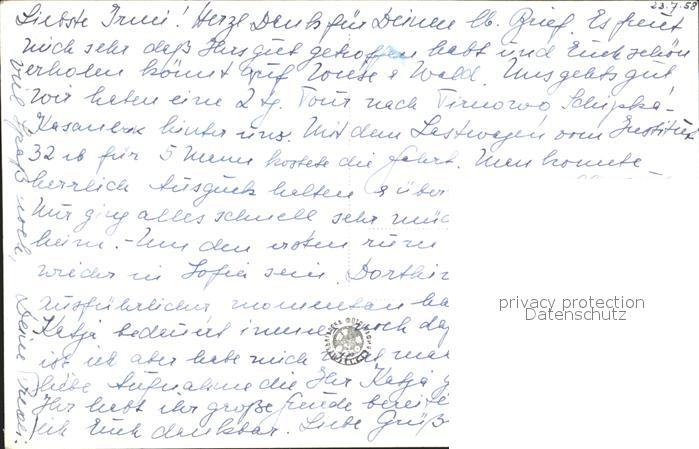 23.7.58
Liebste Irmi! Herzl Dank für Deinen lb. Brief. Es freut
mich sehr daß Ihrs gut getroffen habt und Euch schön
erholen könnt auf Wiese & Wald. Uns gehts gut
Wir haben eine 2 tg. Tour nach Tirnowo Schipka-
Kasanlik hinter uns. Mit dem Lastwagen vom Institut
32 lb für 5 Mann kostete die Fahrt. Man konnte
herrlich Ausguck halten & über
Nur ging alles schnell sehr müd
heim. - Um den ersten rum
wieder in Sofia sein. Dorthin
ausführlicher momentan ha
Katja bedeutet immer noch da
ist ich aber habe mich
liebe Aufnahme die Ihr Katja
Ihr habt ihr große Freude bereitet
ich Euch dankbar. Liebe Grüß
viel Spaß noch, Deine
privacy protection
Datenschutz